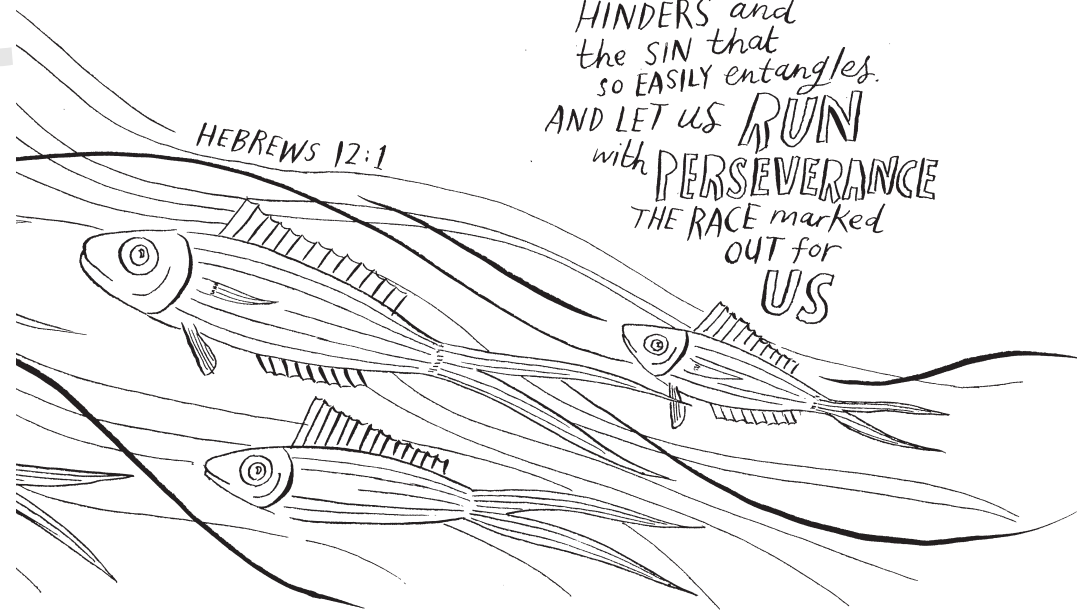 HINDERS and
the SIN that
so EASILY entangles.
AND LET us RUN
with PERSEVERANCE
THE RACE marked
OUT for
US
HEBREWS 12:1